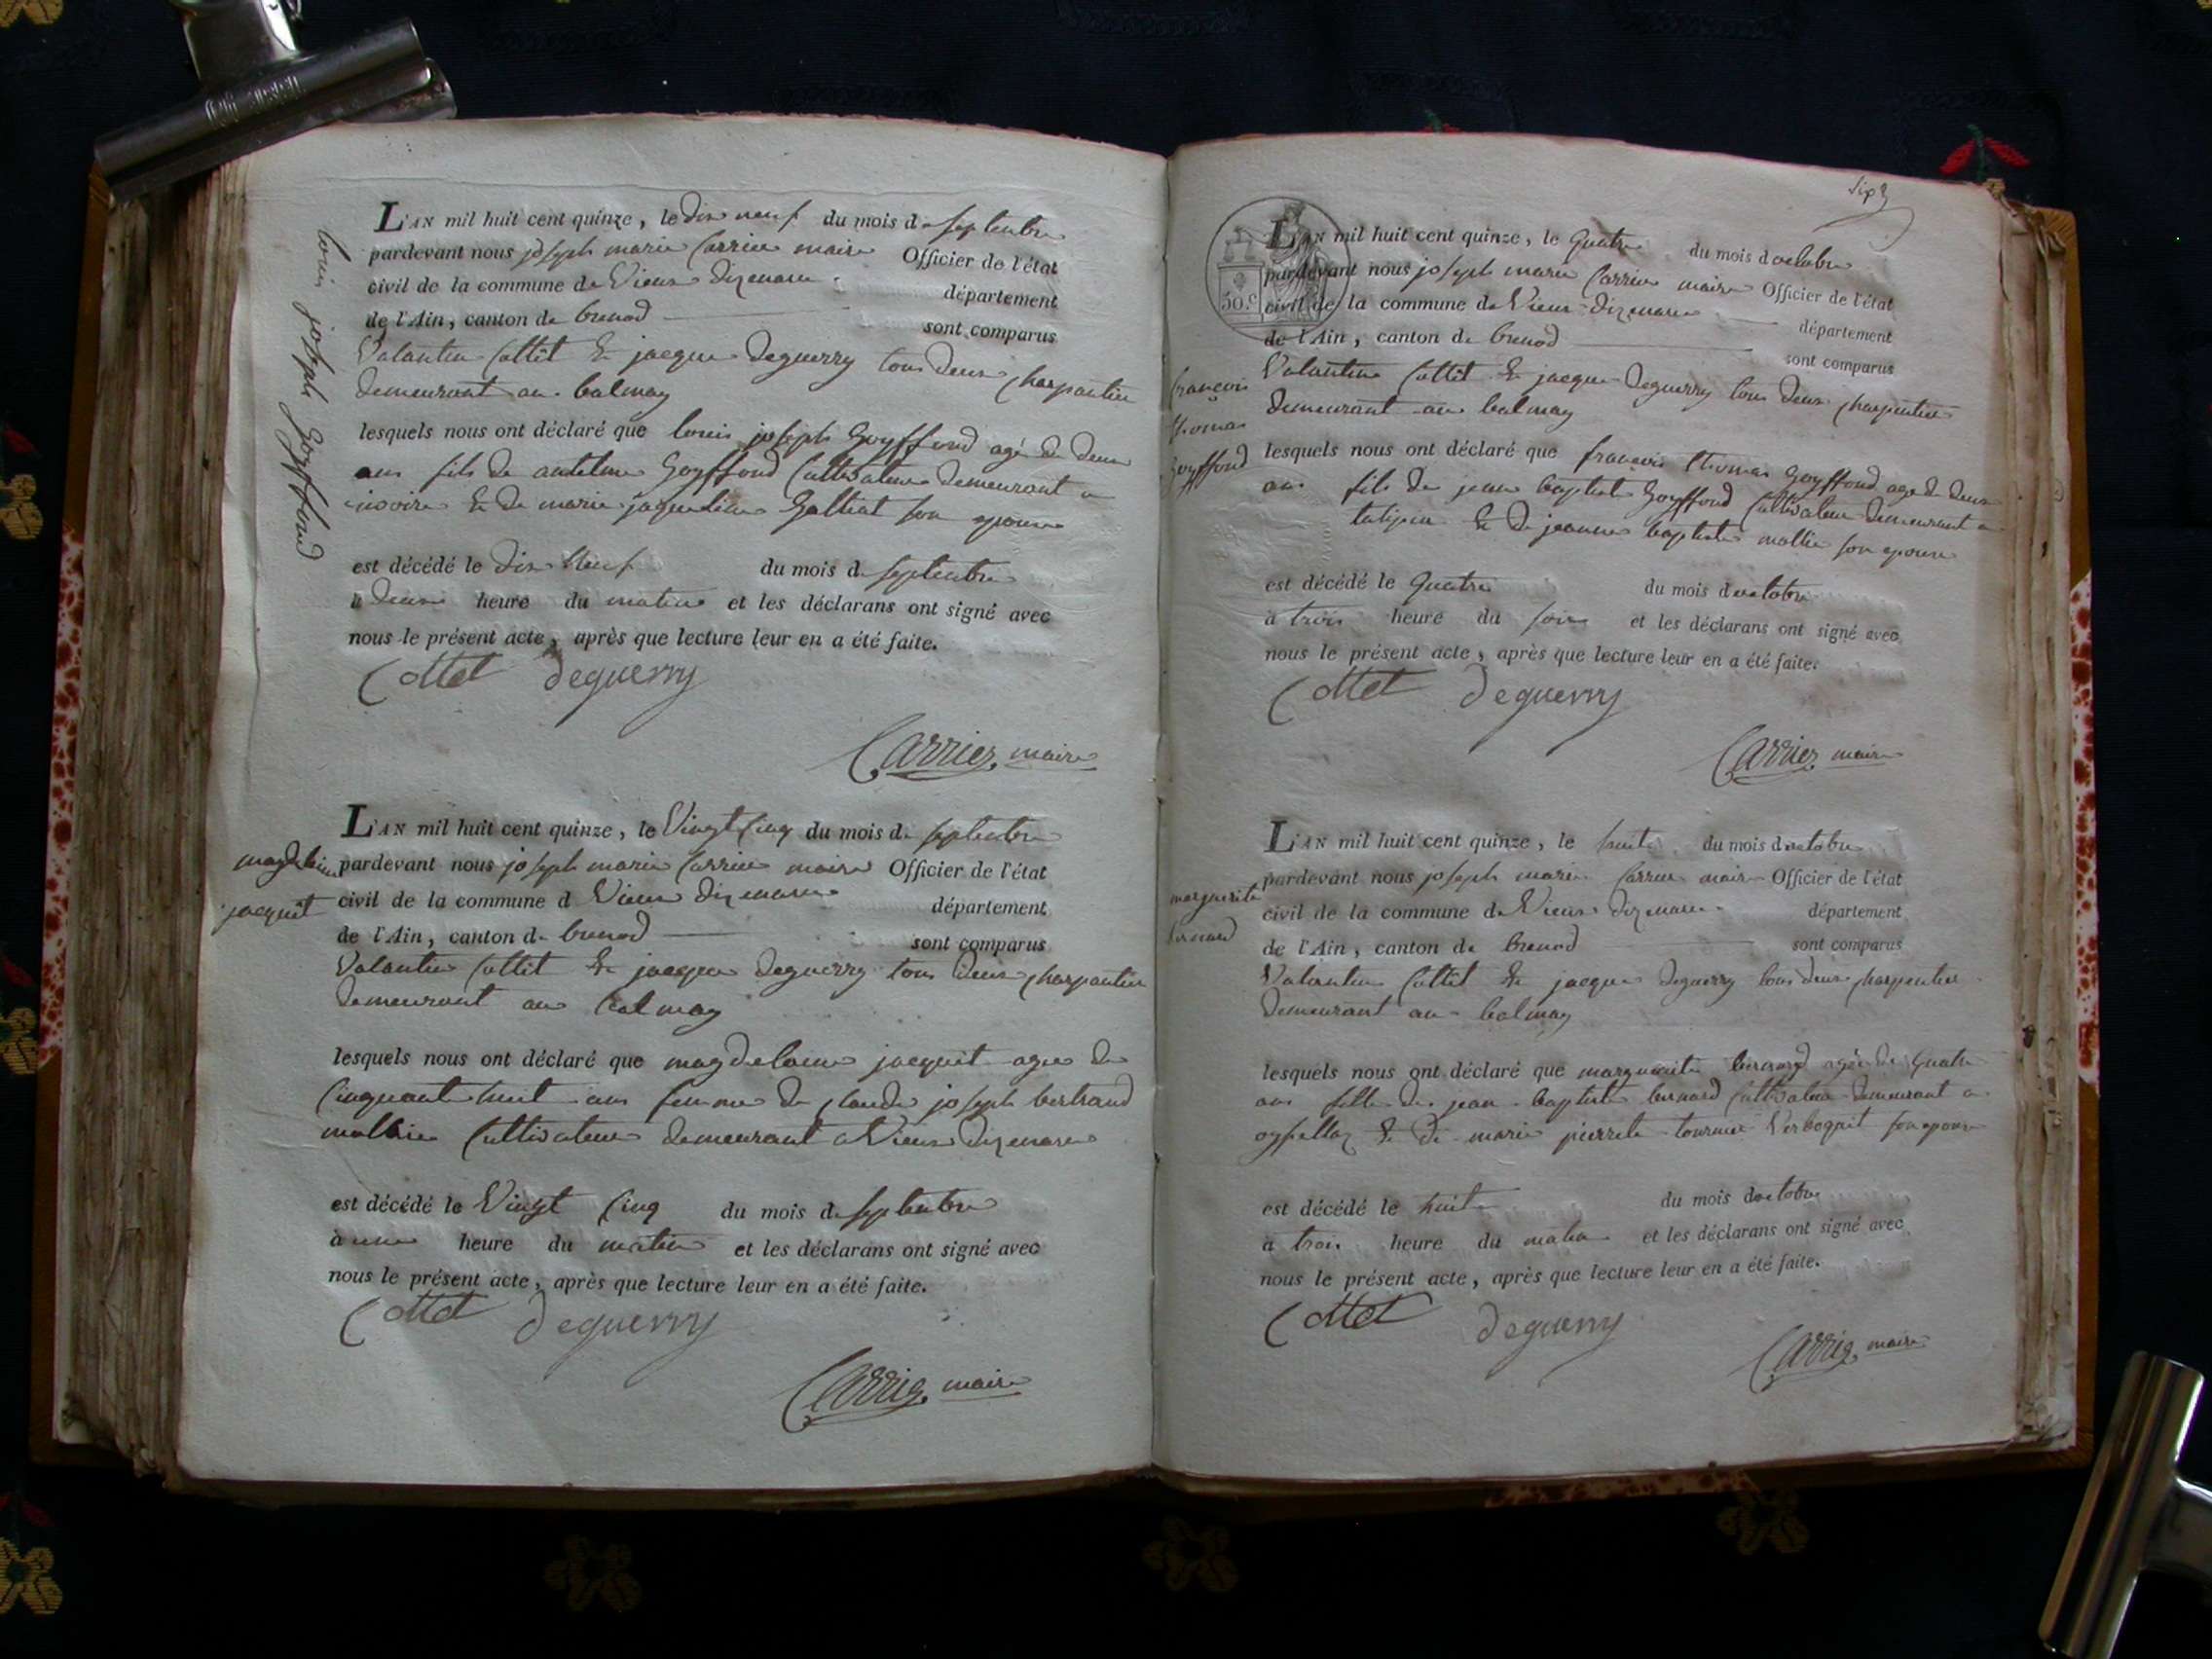 louis joseph Goyffond
L'AN mil huit cent quinze, le dix neuf du mois de septembre
pardevant nous joseph marie Carrier maire Officier de l'état
civil de la commune de Vieux dizenave département
de l'Ain, canton de brenod sont comparus
Valantin Cottet & jacque Deguerry tous deux charpentier
demeurant au balmay
lesquels nous ont déclaré que louis joseph Goyffond agé de deux
ans fils de antelme Goyffond Cultivateur demeurant a
& de marie Galliat son epouse
est décédé le dix Neuf du mois de septembre
à heure du matin et les déclarans ont signé avec
nous le présent acte, après que lecture leur en a été faite.
Cottet deguerry
Carrier maire
magdelaine
jacquet
L'AN mil huit cent quinze, le Vingt Cinq du mois de septembre
pardevant nous joseph marie Carrier maire Officier de l'état
civil de la commune d Vieux dizenave département
de l'Ain, canton de brenod sont comparus
Valantin Cottet & jacque deguerry tous deux charpentier
demeurant au balmay
lesquels nous ont déclaré que magdelaine jacquet agee de
Cinquant huit ans femme de claude joseph bertrand
mathieu Cultivateur demeurant a Vieux dizenave
est décédé le Vingt Cinq du mois de septembre
à une heure du matin et les déclarans ont signé avec
nous le présent acte, après que lecture leur en a été faite.
Cottet deguerry
Carrier maire
50.c
françois
thomas
Goyffond
L'AN mil huit cent quinze, le Quatre du mois d octobre
pardevant nous joseph marie Carrier maire Officier de l'état
civil de la commune de Vieux dizenave département
de l'Ain, canton de brenod sont comparus
Valantin Cottet & jacque Deguerry tous deux charpentier
demeurant au balmay
lesquels nous ont déclaré que françois thomas Goyffond age de deux
ans fils de jean baptiste Goyffond Cultivateur demeurant a
& de jeanne baptiste son epouse
est décédé le Quatre du mois d octobre
à trois heure du soir et les déclarans ont signé avec
nous le présent acte, après que lecture leur en a été faite.
Cottet deguerry
Carrier maire
marguerite
bernard
L'AN mil huit cent quinze, le huit du mois d octobre
pardevant nous joseph marie Carrier maire Officier de l'état
civil de la commune de Vieux dizenave département
de l'Ain, canton de brenod sont comparus
Valantin Cottet & jacque deguerry tous deux charpentier
demeurant au balmay
lesquels nous ont déclaré que marguerite bernard agée de Quatre
ans fille de jean baptiste bernard Cultivateur demeurant a
& de marie pierrete son epouse
est décédé le huit du mois d octobre
à trois heure du matin et les déclarans ont signé avec
nous le présent acte, après que lecture leur en a été faite.
Cottet deguerry
Carrier maire